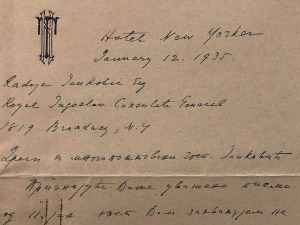 Hotel New Yorker
January 12. 1935.
Radoje Jankovic Esq
Royal Jugoslav Consulate General
1819 Broadway, N.Y
Драги и многопоштовани госп. Јанковић
Признајући Ваше уважено писмо
од 11. јан. опет Вам захваљујем на